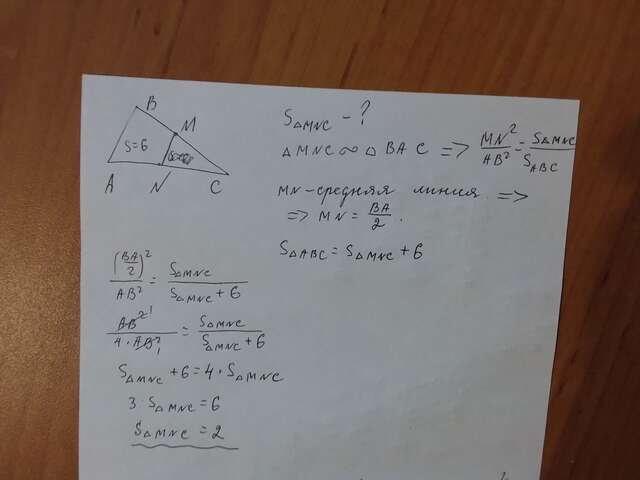 B
M
S=6
A
N
C
S△MNC - ?
△MNC ∞ △BAC => MN²/AB² = S△MNC/SABC
MN - средняя линия =>
=> MN = BA/2.
S△ABC = S△MNC + 6
(BA/2)²/AB² = S△MNC/S△MNC + 6
AB²¹/4·AB²₁ = S△MNC/S△MNC + 6
S△MNC + 6 = 4·S△MNC
3·S△MNC = 6
S△MNC = 2